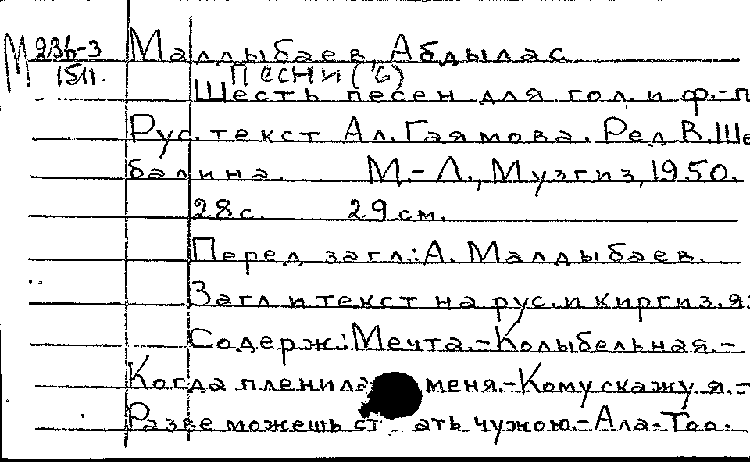 М 236-3 Малдыбаев, Абдылас
1511. ПЕСНИ (6)
Шесть песен для гол. и ф.-п
Рус. текст Ал. Гаямова. Ред В. Ше
балина. М.-Л., Музгиз, 1950.
28 с. 29 см.
Перед загл.: А. Малдыбаев.
Загл и текст на рус. и киргиз. яз
Содерж.: Мечта.-Колыбельная.-
Когда пленила меня.-Кому скажу я.-
Разве можешь ст ать чужою.-Ала-Тоо.